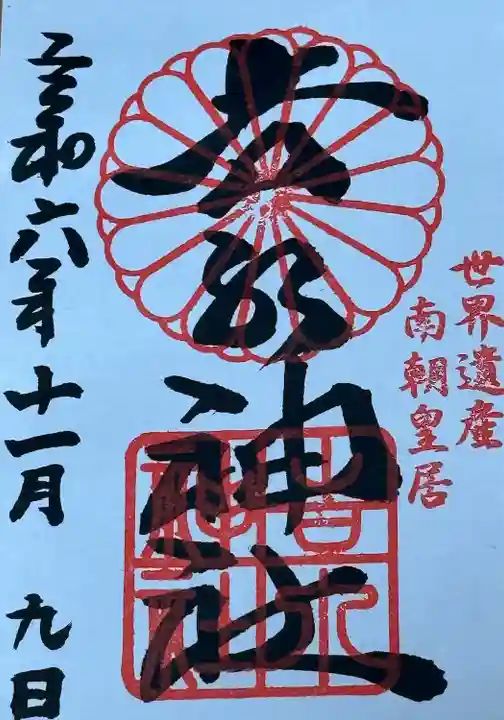 世界遺産
南朝皇居
吉水神社
吉水
神社
令和六年十一月 九日